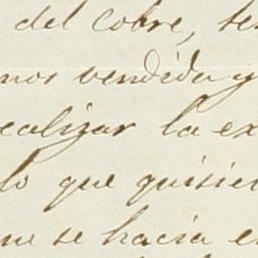 del cobre, te
mos vendida y
ealizar la ex
lo que quisie
ue se hacia e